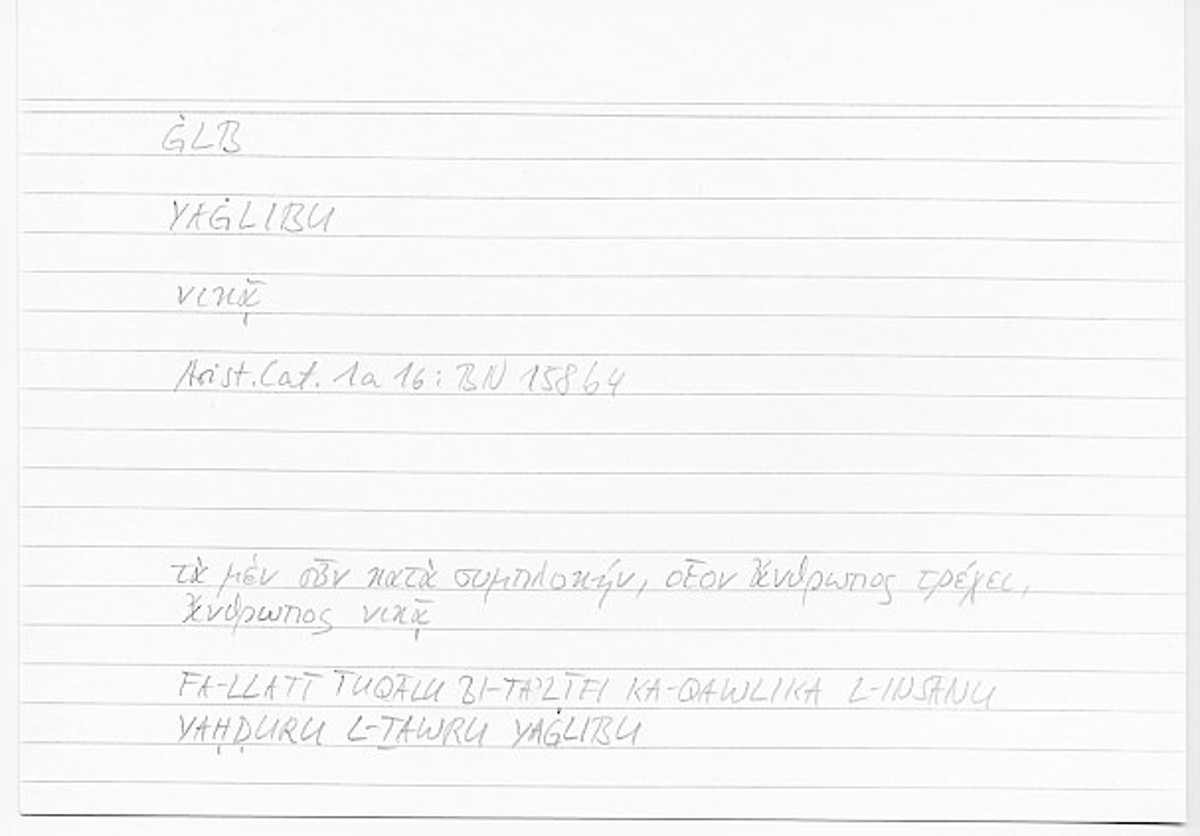 ĠLB
YAĠLIBU
νικᾷ
Arist. Cat. 1a 16: BN 15864
τὰ μὲν οὖν κατὰ συμπλοκήν, οἷον ἄνθρωπος τρέχει,
ἄνθρωπος νικᾷ
FA-LLATĪ TUQĀLU BI-TAʾLĪFI KA-QAWLIKA L-INSĀNU
YAḤḌURU L-ṮAWRU YAĠLIBU